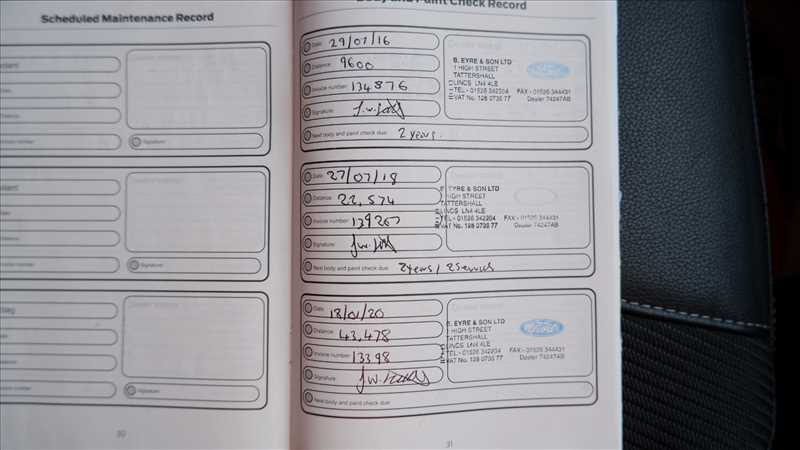 Scheduled Maintenance Record
Signature:
Signature:
Signature:
30
Body and Paint Check Record
Date: 29/07/16
Distance: 9600
Invoice number: 134876
Signature:
Next body and paint check due: 2 years.
B. EYRE & SON LTD
1 HIGH STREET
TATTERSHALL
LINCS LN4 4LE
TEL - 01526 342204 FAX - 01526 344431
VAT No. 128 0735 77 Dealer 74247AB
Ford
Date: 27/07/18
Distance: 22,574
Invoice number: 139267
Signature:
Next body and paint check due: 2 years / 2 Services
B. EYRE & SON LTD
HIGH STREET
TATTERSHALL
LINCS LN4 4LE
TEL - 01526 342204 FAX - 01526 344431
VAT No. 128 0735 77 Dealer 74247AB
Date: 18/01/20
Distance: 43,478
Invoice number: 13398
Signature:
Next body and paint check due:
B. EYRE & SON LTD
1 HIGH STREET
TATTERSHALL
LINCS LN4 4LE
TEL - 01526 342204 FAX - 01526 344431
VAT No. 128 0735 77 Dealer 74247AB
Ford
31